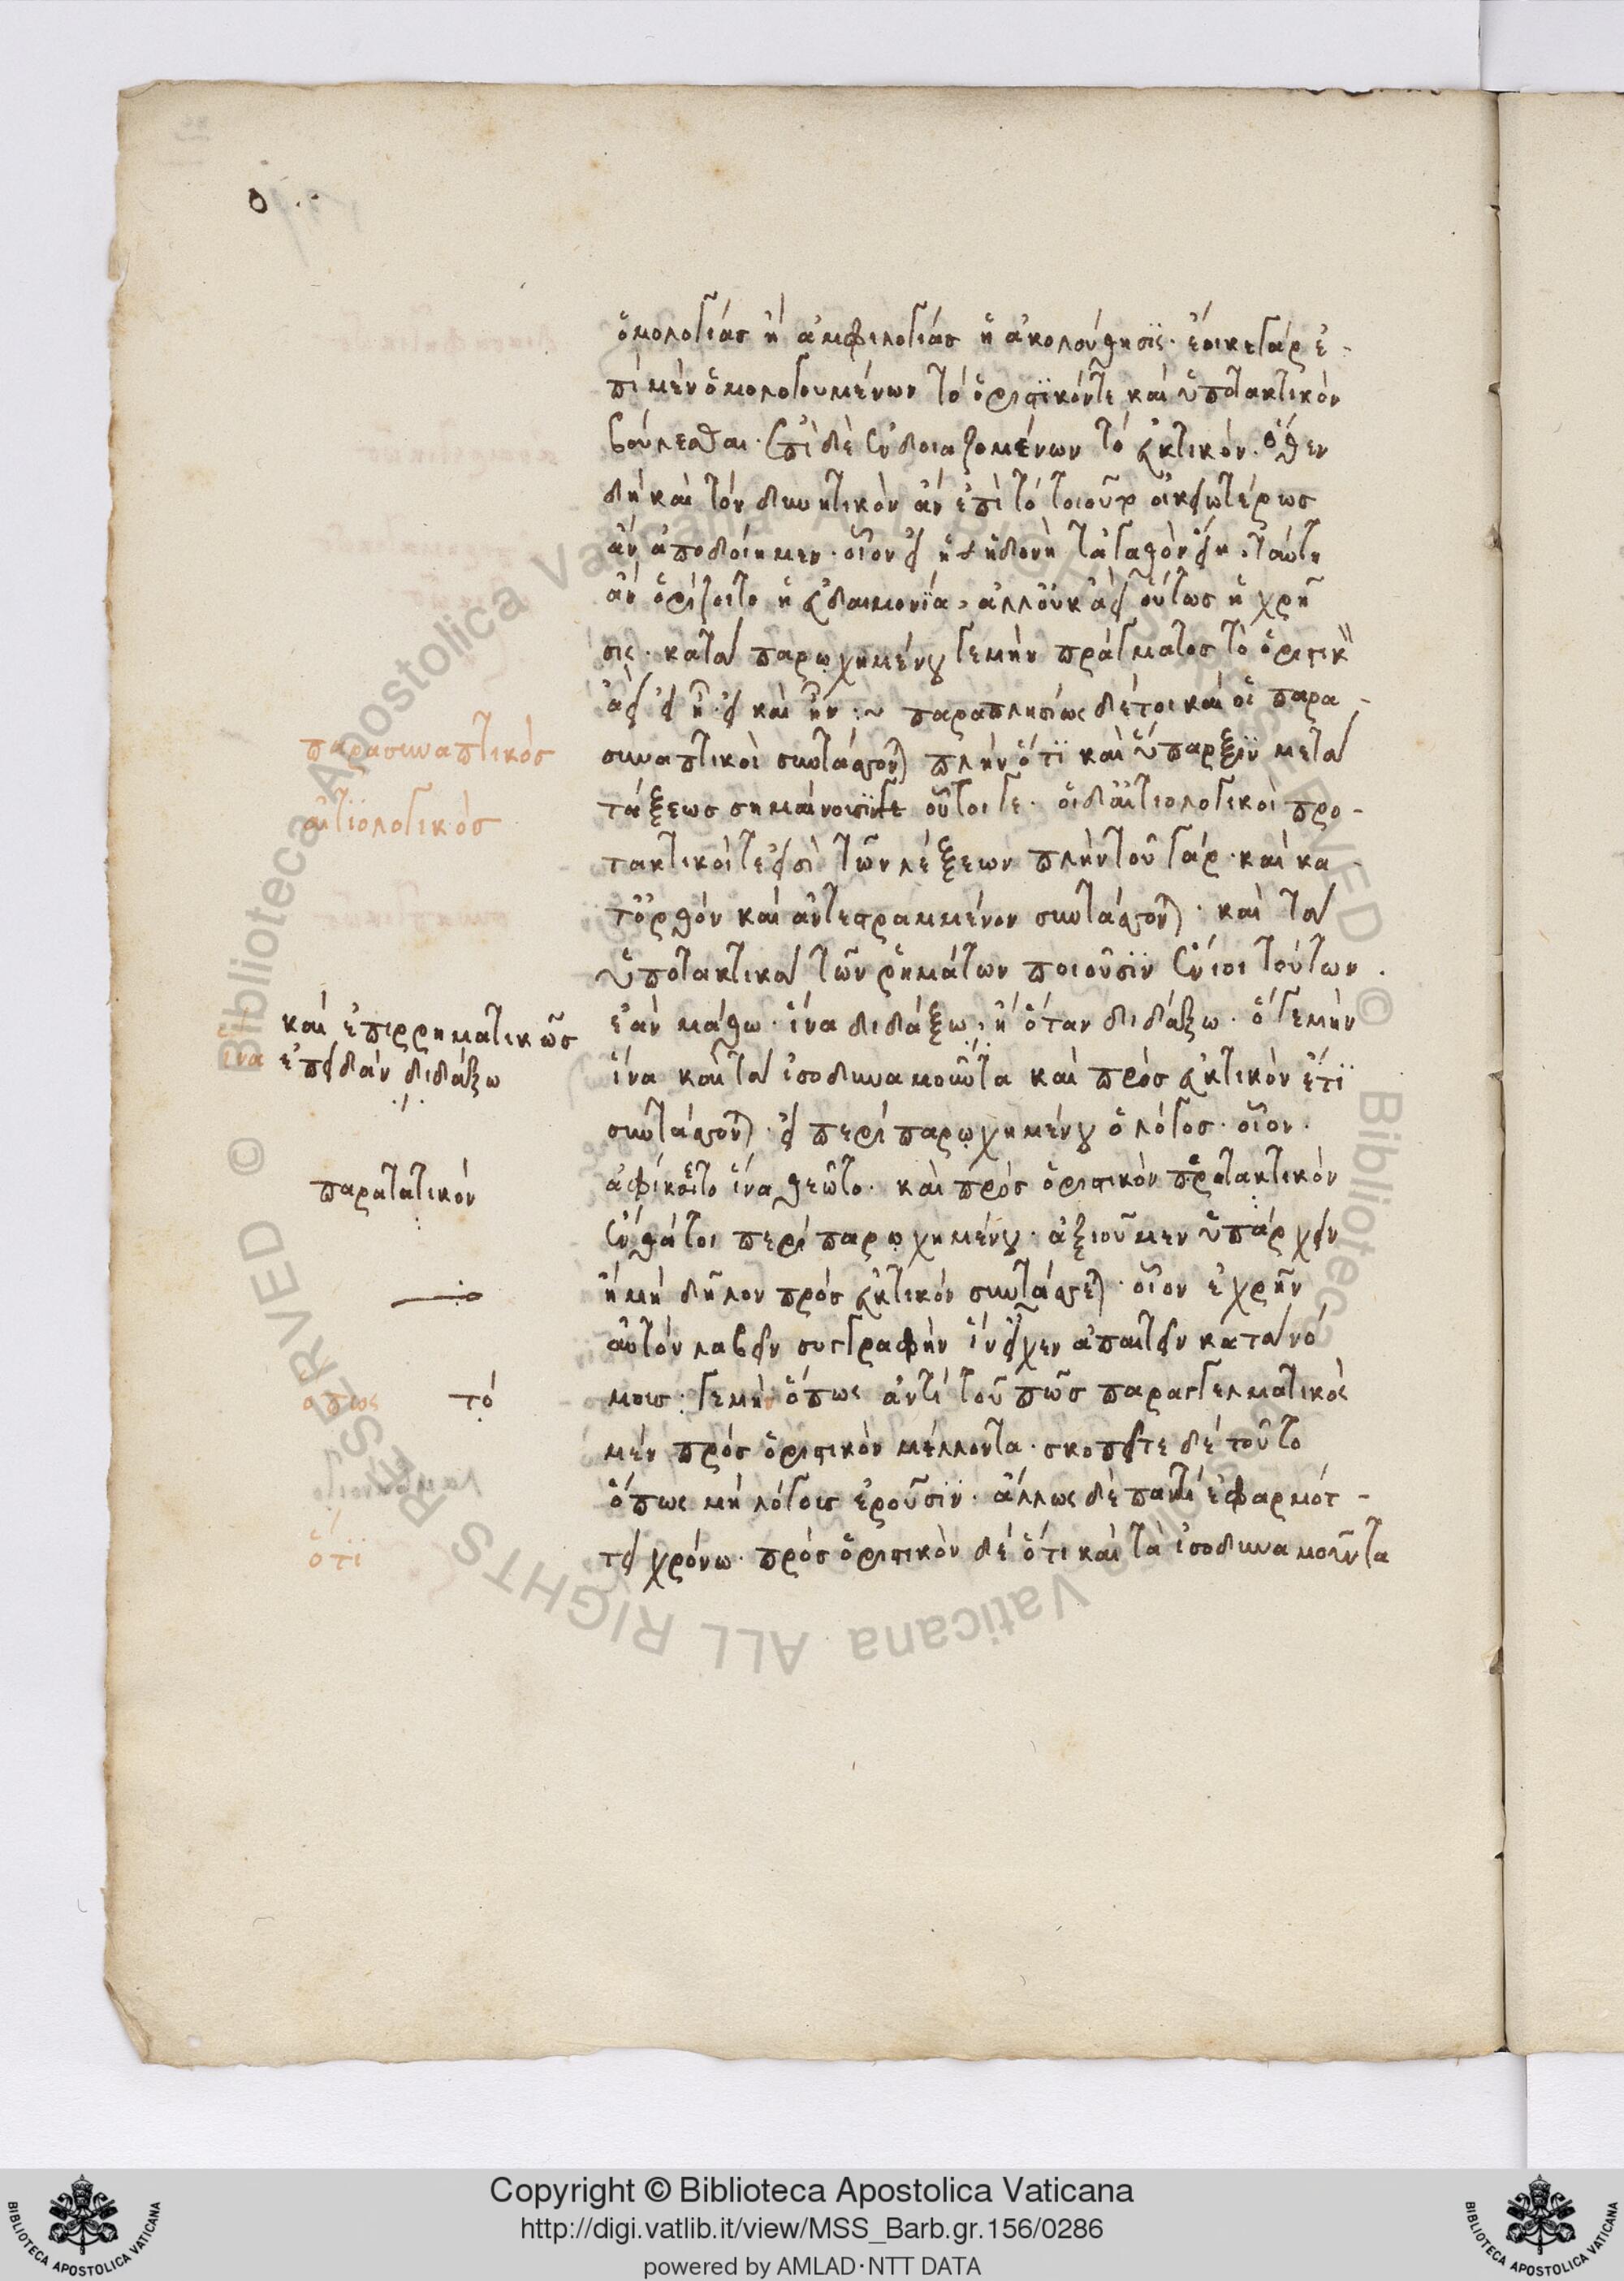 ὁμολογίας ἢ ἀμφιλογίας ἡ ἀκολούθησις· ἔοικε γάρ ἐ-
πὶ μὲν ὁμολογουμένων τὸ ὁριστικόν τε καὶ ὑποτακτικὸν
βούλεσθαι· ἐπὶ δὲ ἐνδοιαζομένων τὸ εὐκτικόν. ὅθεν
δὴ καὶ τὸν δυνητικὸν ἂν ἐπὶ τὸ τοιοῦτον οἰκειωτέρως
ἂν ἀποδοίημεν· οἷον εἰ ἡ ἡδονὴ τἀγαθὸν εἴη· ταύτῃ
ἂν ὁρίζοιτο ἡ εὐδαιμονία, ἀλλ' οὐκ ἀεὶ οὕτως ἡ χρῆ
σις· κατὰ παρῳχημένου γε μὴν πράγματος τὸ ὁριστικ
ἀεὶ εἰ ἦ· εἰ καὶ ἦν :~ παραπλησίως δέ τοι καὶ οἱ παρα-
συναπτικοὶ συντάσσονται πλὴν ὅτι καὶ ὕπαρξιν μετὰ
τάξεως σημαίνουσι οὗτοί γε· οἱ δ' αἰτιολογικοὶ προ-
τακτικοί τε εἰσὶ τῶν λέξεων πλὴν τοῦ γάρ· καὶ κα-
τ' ὀρθὸν καὶ ἀντεστραμμένον συντάσσονται· καὶ τὰ
ὑποτακτικὰ τῶν ῥημάτων ποιοῦσιν ἔνιοι τούτων.
ἐὰν μάθω· ἵνα διδάξω, ἢ ὅταν διδάξω· ὅ γε μὴν
ἵνα καὶ τὰ ἰσοδυναμοῦντα καὶ πρὸς εὐκτικὸν ἔτι
συντάσσονται· εἰ περὶ παρῳχημένου ὁ λόγος· οἷον·
ἀφίκετο ἵνα θεῷτο· καὶ πρὸς ὁριστικὸν προτακτικὸν
ἐνθάτοι περὶ παρῳχημένου· ἀξιοῦμεν ὑπάρχειν
ἢ μὴ δῆλον πρὸς εὐκτικὸν συντάσσεται· οἷον ἐχρῆν
αὐτὸν λαβεῖν συγγραφὴν ἵν' εἶχεν ἀπαιτεῖν κατὰ νό
μους· γε μὴν ὅπως ἀντὶ τοῦ πῶς παραγγελματικὸς
μὲν πρὸς ὁριστικὸν μέλλοντα· σκοπεῖτε δὲ τοῦτο
ὅπως μὴ λόγους ἐροῦσιν· ἄλλως δὲ παντὶ ἐφαρμότ-
τει χρόνω· πρὸς ὁριστικὸν δὲ ὅτι καὶ τὰ ἰσοδυναμοῦντα
παρασυναπτικός
αἰτιολογικός
καὶ ἐπιρρηματικῶς
ἵνα
ἐπειδὰν διδάξω
παρατατικόν
ὅπως
τό
ὅτι
Copyright © Biblioteca Apostolica Vaticana
http://digi.vatlib.it/view/MSS_Barb.gr.156/0286
powered by AMLAD·NTT DATA
BIBLIOTECA APOSTOLICA VATICANA
BIBLIOTECA APOSTOLICA VATICANA
© Biblioteca Apostolica Vaticana ALL RIGHTS RESERVED © Biblioteca Apostolica Vaticana ALL RIGHTS RESERVED